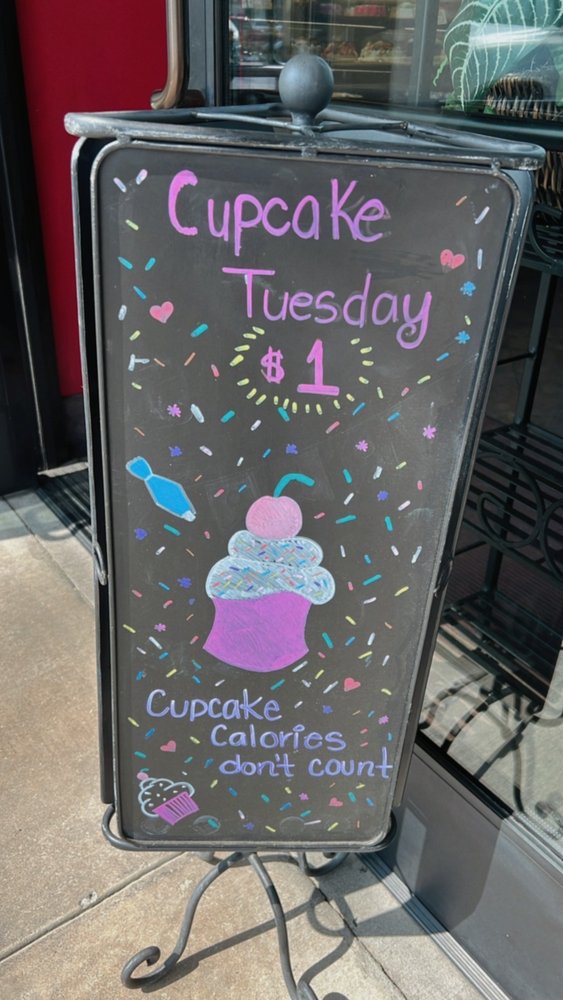 Cupcake
Tuesday
$1
Cupcake
Calories
don't count